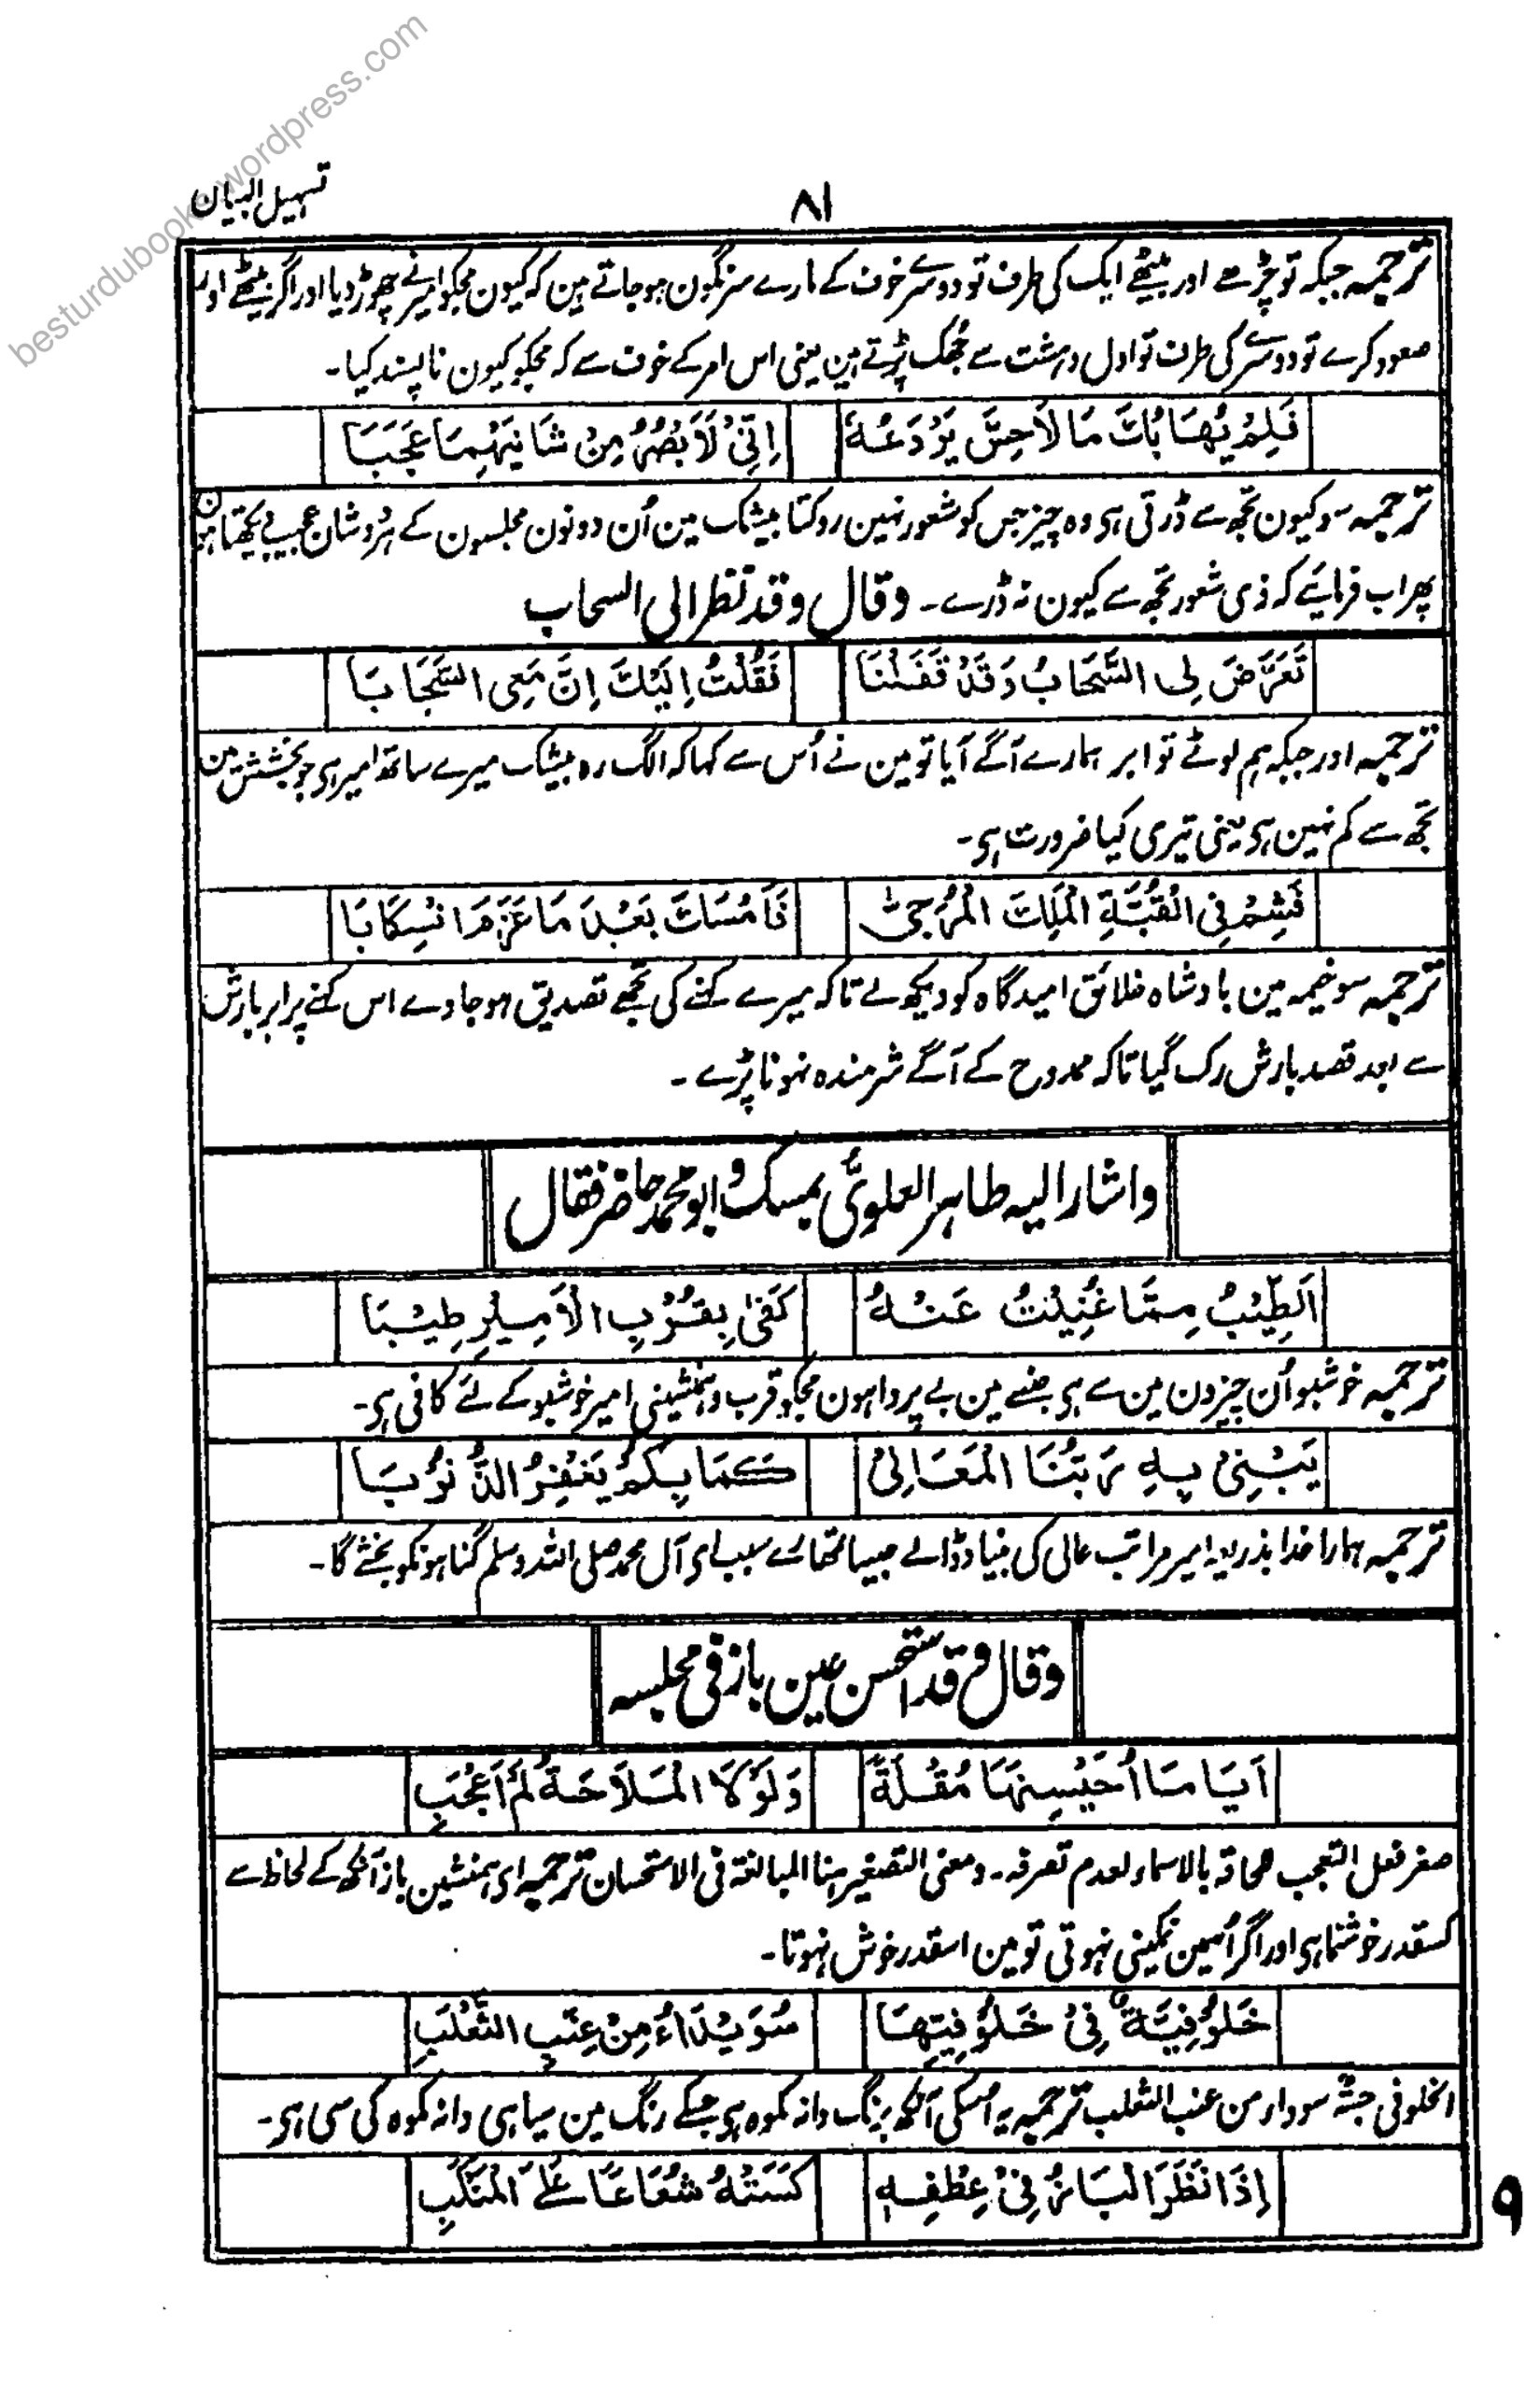 besturdubooks.wordpress.com
تسہیل البیان
۸۱
ترجمہ جبکہ تو چڑھے اور بیٹھے ایک کی طرف تو دوسرے خوف کے مارے سرنگون ہو جاتے ہین کہ کیون مجکو امیر نے چھوڑ دیا اور اگر بیٹھے اور
صعود کرے تو دوسرے کی طرف تو اول دہشت سے جُھک پڑتے ہین یعنی اس امر کے خوف سے کہ مجکو کیون ناپسند کیا۔
فَلِمْ یُھَابُكَ مَا لَاحِسَّ یَرْدَعُهٗ اِنِّیْ لَاَبْصُرُ مِنْ شَانَیْهِمَا عَجَبَا
ترجمہ سو کیون تجھ سے ڈرتی ہی وہ چیز جس کو شعور نہین روکتا بیشک مین اُن دونون مجلسون کے ہر دو شان عجیب دیکھتا ہون
پھر اب فرمایئے کہ ذی شعور تجھ سے کیون نہ ڈرے۔ وقال وقد نظر الی السحاب
تَعَرَّضَ لِی السَّحَابُ وَقَدْ قَفَلْنَا فَقُلْتُ اِلَیْكَ اِنَّ مَعِی السَّحَابَا
ترجمہ اور جبکہ ہم لوٹے تو ابر ہمارے آگے آیا تو مین نے اُس سے کہا کہ الگ رہ بیشک میرے ساتھ امیر ہی جو بخشش مین
تجھ سے کم نہین ہی یعنی تیری کیا ضرورت ہی۔
فَشِمْ فِی الْقُبَّةِ الْمَلِكَ الْمُرَجّٰی فَاَمْسَكَ بَعْدَ مَا عَزَمَ انْسِكَابَا
ترجمہ سو خیمہ مین بادشاہ خلائق امیدگاہ کو دیکھ لے تاکہ میرے کہنے کی تجھے تصدیق ہو جاوے اس کہنے پر ابر بارش
سے بعد قصد بارش رک گیا تاکہ ممدوح کے آگے شرمندہ نہونا پڑے۔
واشار الیہ طاہر العلویّ بمسک وابو محمد حاضر فقال
اَلطِّیْبُ مِمَّا غَنِیْتُ عَنْهُ كَفٰی بِقُرْبِ الْاَمِیْرِ طِیْبَا
ترجمہ خوشبو اُن چیزون مین سے ہی جنسے مین بے پروا ہون مجکو قرب و ہمنشینی امیر خوشبو کے لئے کافی ہی۔
یَبْنِیْ بِهٖ رَبُّنَا الْمَعَالِیْ كَمَا بِكُمْ یَغْفِرُ الذُّنُوْبَا
ترجمہ ہمارا خدا بذریعہ امیر مراتب عالی کی بنیاد ڈالے جیسا تمھارے سبب ای آل محمد صلی اللہ وسلم گناہونکو بخشے گا۔
وقال وقد استحسن عین باز فی مجلسہ
اَیَا مَا اُحَیْسِنَهَا مُقْلَةً وَلَوْلَا الْمَلَاحَةُ لَمْ اَعْجَبِ
صغر فعل التعجب لحاقہ بالاسماء لعدم تعرفہ۔ ومعنی التصغیر ہنا المبالغۃ فی الاستحسان ترجمہ ای ہمنشین باز آنکھ کے لحاظ سے
کسقدر خوشنما ہی اور اگر اُسمین نمکینی نہوتی تو مین اسقدر خوش نہوتا۔
خَلُوْقِیَّةٌ فِیْ خَلُوْقِیِّهَا سُوَیْدَاءُ مِنْ عِنَبِ الثَّعْلَبِ
الخلوفی حبۃ سوداء من عنب الثعلب ترجمہ یہ اُسکی آنکھ برنگ دانہ کموہ ہی جسکے رنگ مین سیاہی دانہ کموہ کی سی ہی۔
اِذَا نَظَرَ الْبَازُ فِیْ عِطْفِهٖ كَسَتْهُ شُعَاعًا عَلَی الْمَنْكِبِ
۹